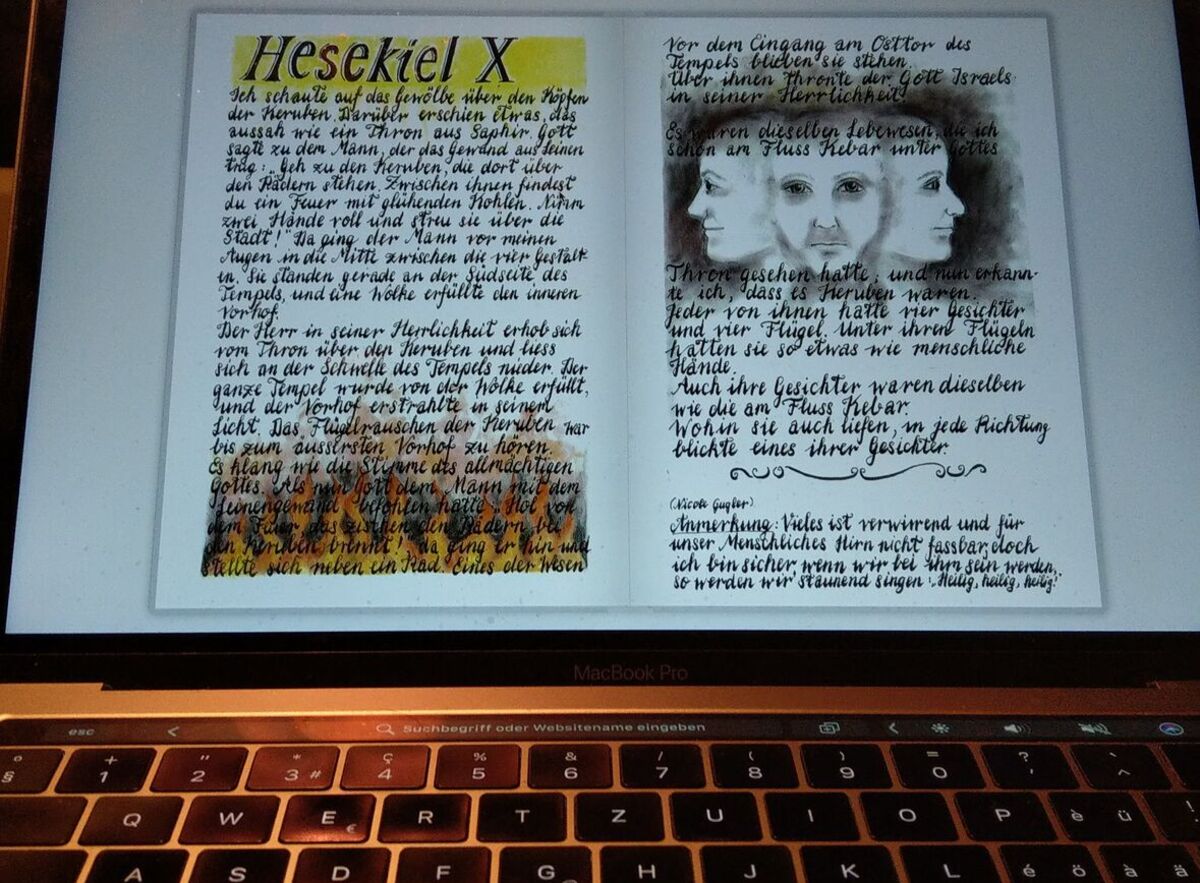 Hesekiel X
Ich schaute auf das Gewölbe über den Köpfen
der Keruben. Darüber erschien etwas, das
aussah wie ein Thron aus Saphir. Gott
sagte zu dem Mann, der das Gewand aus Leinen
trug: „Geh zu den Keruben, die dort über
den Rädern stehen. Zwischen ihnen findest
du ein Feuer mit glühenden Kohlen. Nimm
zwei Hände voll und streu sie über die
Stadt!" Da ging der Mann vor meinen
Augen in die Mitte zwischen die vier Gestalt
en. Sie standen gerade an der Südseite des
Tempels, und eine Wolke erfüllte den inneren
Vorhof.
Der Herr in seiner Herrlichkeit erhob sich
vom Thron über den Keruben und liess
sich an der Schwelle des Tempels nieder. Der
ganze Tempel wurde von der Wolke erfüllt,
und der Vorhof erstrahlte in seinem
Licht. Das Flügelrauschen der Keruben war
bis zum äussersten Vorhof zu hören.
Es klang wie die Stimme des allmächtigen
Gottes. Als nun Gott dem Mann mit dem
Leinengewand befohlen hatte: Hol von
dem Feuer das zwischen den Rädern bei
den Keruben brennt! da ging er hin und
stellte sich neben ein Rad. Eines der Wesen
Vor dem Eingang am Osttor des
Tempels blieben sie stehen.
Über ihnen thronte der Gott Israels
in seiner Herrlichkeit.
Es waren dieselben Lebewesen, die ich
schon am Fluss Kebar unter Gottes
Thron gesehen hatte; und nun erkann-
te ich, dass es Keruben waren.
Jeder von ihnen hatte vier Gesichter
und vier Flügel. Unter ihren Flügeln
hatten sie so etwas wie menschliche
Hände.
Auch ihre Gesichter waren dieselben
wie die am Fluss Kebar.
Wohin sie auch liefen, in jede Richtung
blickte eines ihrer Gesichter.
(Nicole Gugler)
Anmerkung: Vieles ist verwirrend und für
unser Menschliches Hirn nicht fassbar, doch
ich bin sicher, wenn wir bei ihm sein werden,
so werden wir staunend singen: „Heilig, heilig, heilig!"
MacBook Pro
esc < Suchbegriff oder Websitename eingeben <
° + " * # ç % & / ( ) = ? `
§ 1 2 3 4 5 6 7 8 9 0 ' ^
Q W E € R T Z U I O P è ü !
A S D F G H J K L é ö à ä